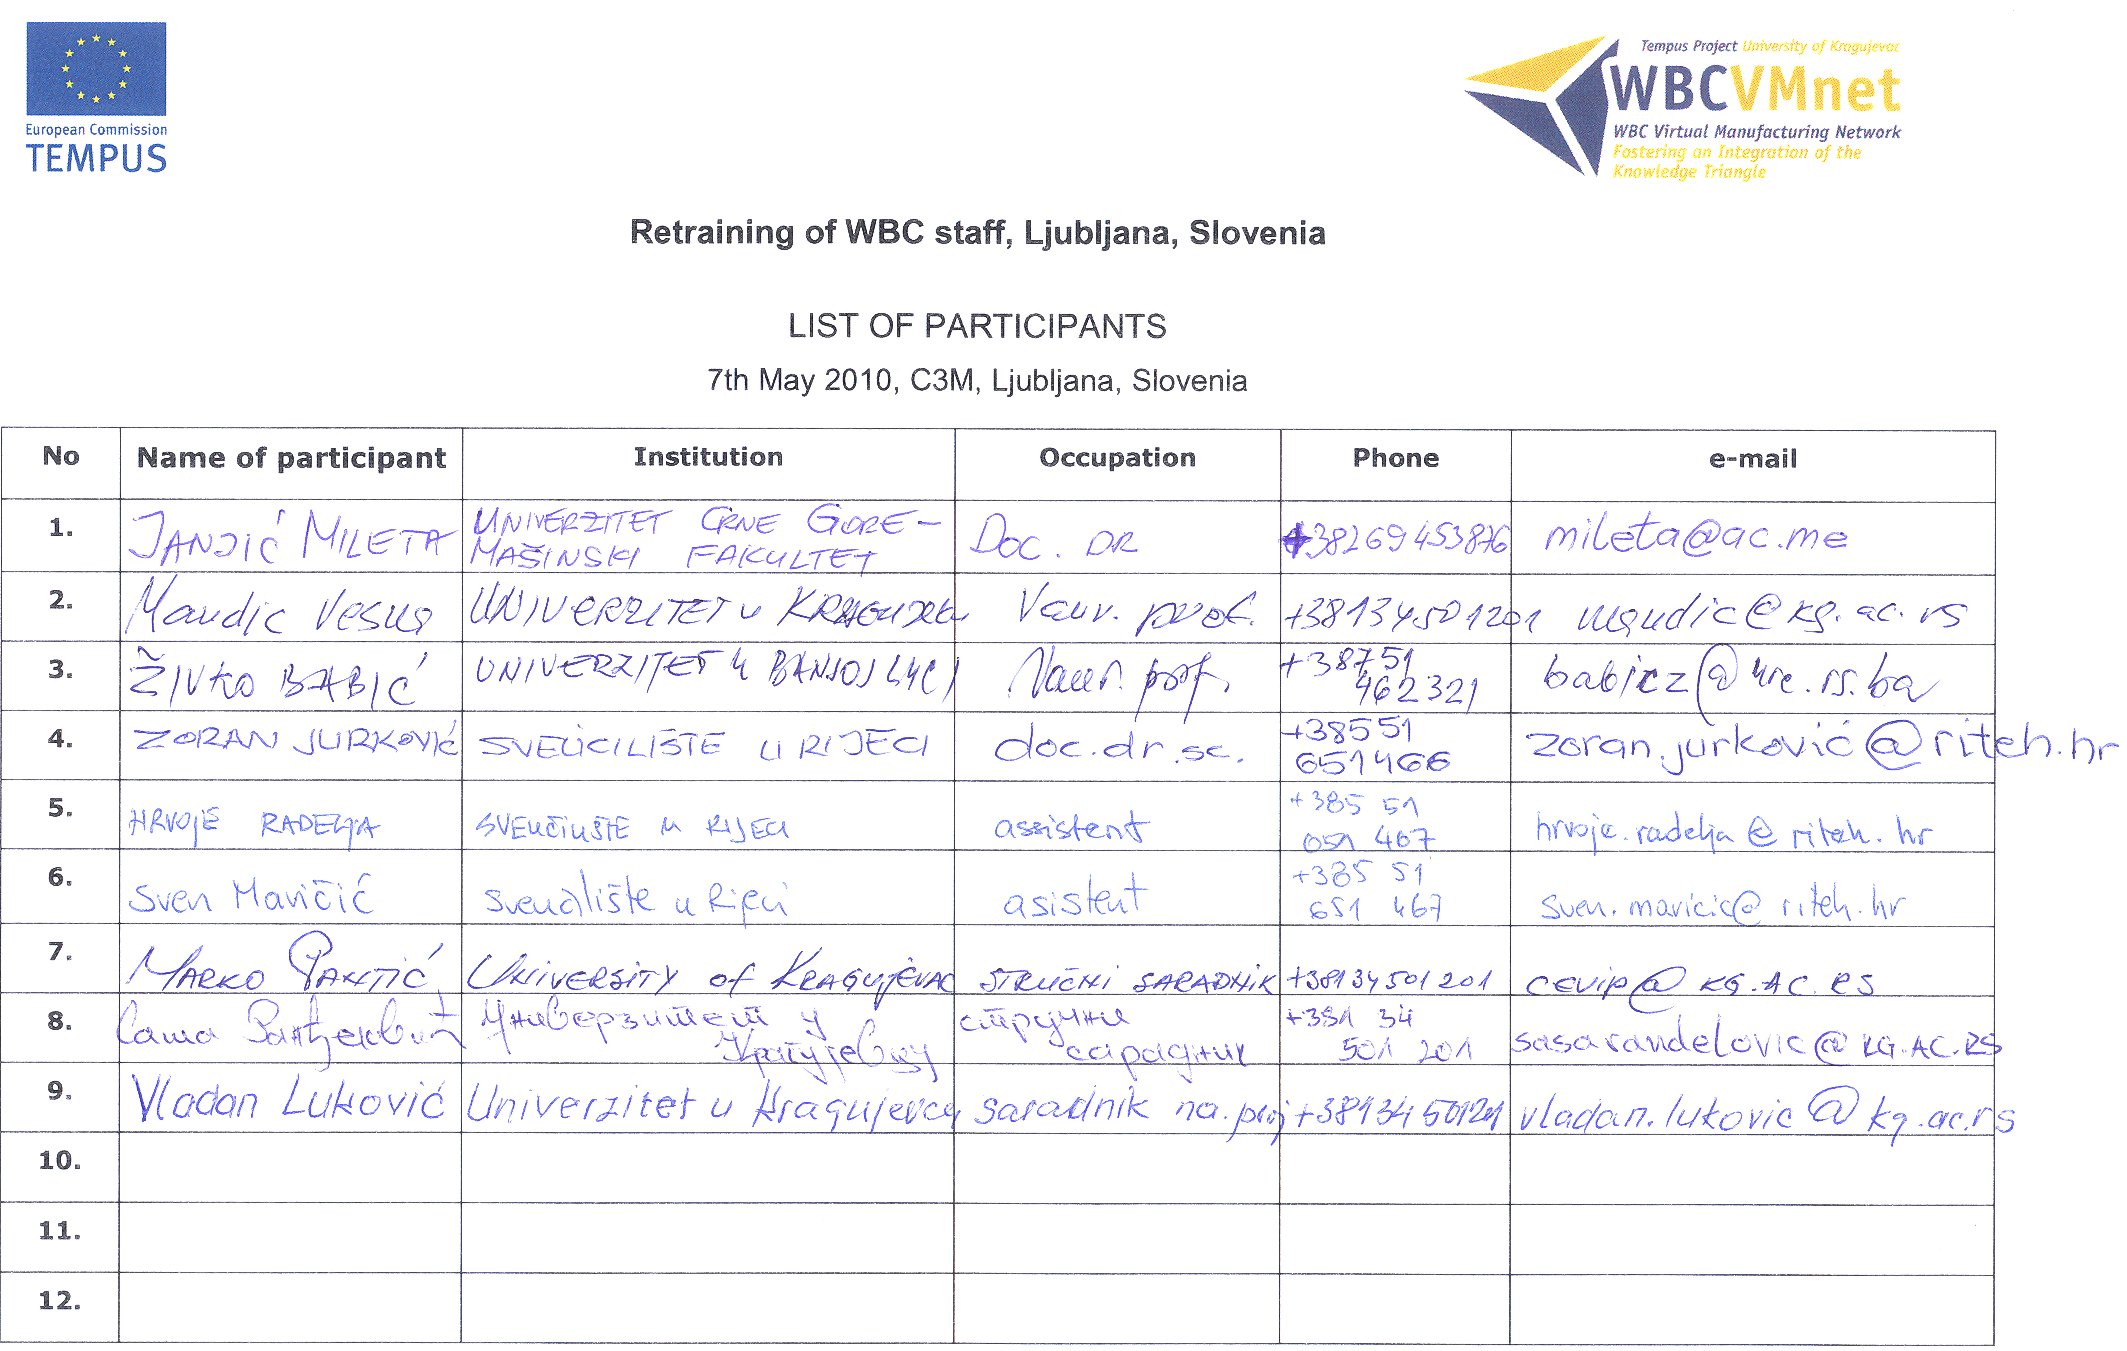 European Commission
TEMPUS
Tempus Project University of Kragujevac
WBCVMnet
WBC Virtual Manufacturing Network
Fostering an Integration of the
Knowledge Triangle
Retraining of WBC staff, Ljubljana, Slovenia
LIST OF PARTICIPANTS
7th May 2010, C3M, Ljubljana, Slovenia
No Name of participant Institution Occupation Phone e-mail
1. JANJIĆ MILETA UNIVERZITET CRNE GORE - MAŠINSKI FAKULTET DOC. DR +38269453876 mileta@ac.me
2. Mandic Vesna UNIVERZITET u KRAGUJEVCU Vanr. prof. +38134501201 mandic@kg.ac.rs
3. ŽIVKO BABIĆ UNIVERZITET U BANJOJ LUCI Vanr. prof. +38751 462321 babicz@urc.rs.ba
4. ZORAN JURKOVIĆ SVEUČILIŠTE U RIJECI doc.dr.sc. +38551 651466 zoran.jurković@riteh.hr
5. HRVOJE RADELJA SVEUČILIŠTE U RIJECI assistent +385 51 651 467 hrvoje.radelja@riteh.hr
6. Sven Maričić Sveučilište u Rijeci asistent +385 51 651 467 sven.maricic@riteh.hr
7. MARKO PANTIĆ UNIVERSITY of KRAGUJEVAC STRUČNI SARADNIK +38134501201 cevip@KG.AC.RS
8. Саша Ранђеловић Универзитет у Крагујевцу стручни сарадник +381 34 501 201 sasarandelovic@KG.AC.RS
9. Vladan Luković Univerzitet u Kragujevcu saradnik na. proj vladan.lukovic@kg.ac.rs
10.
11.
12.